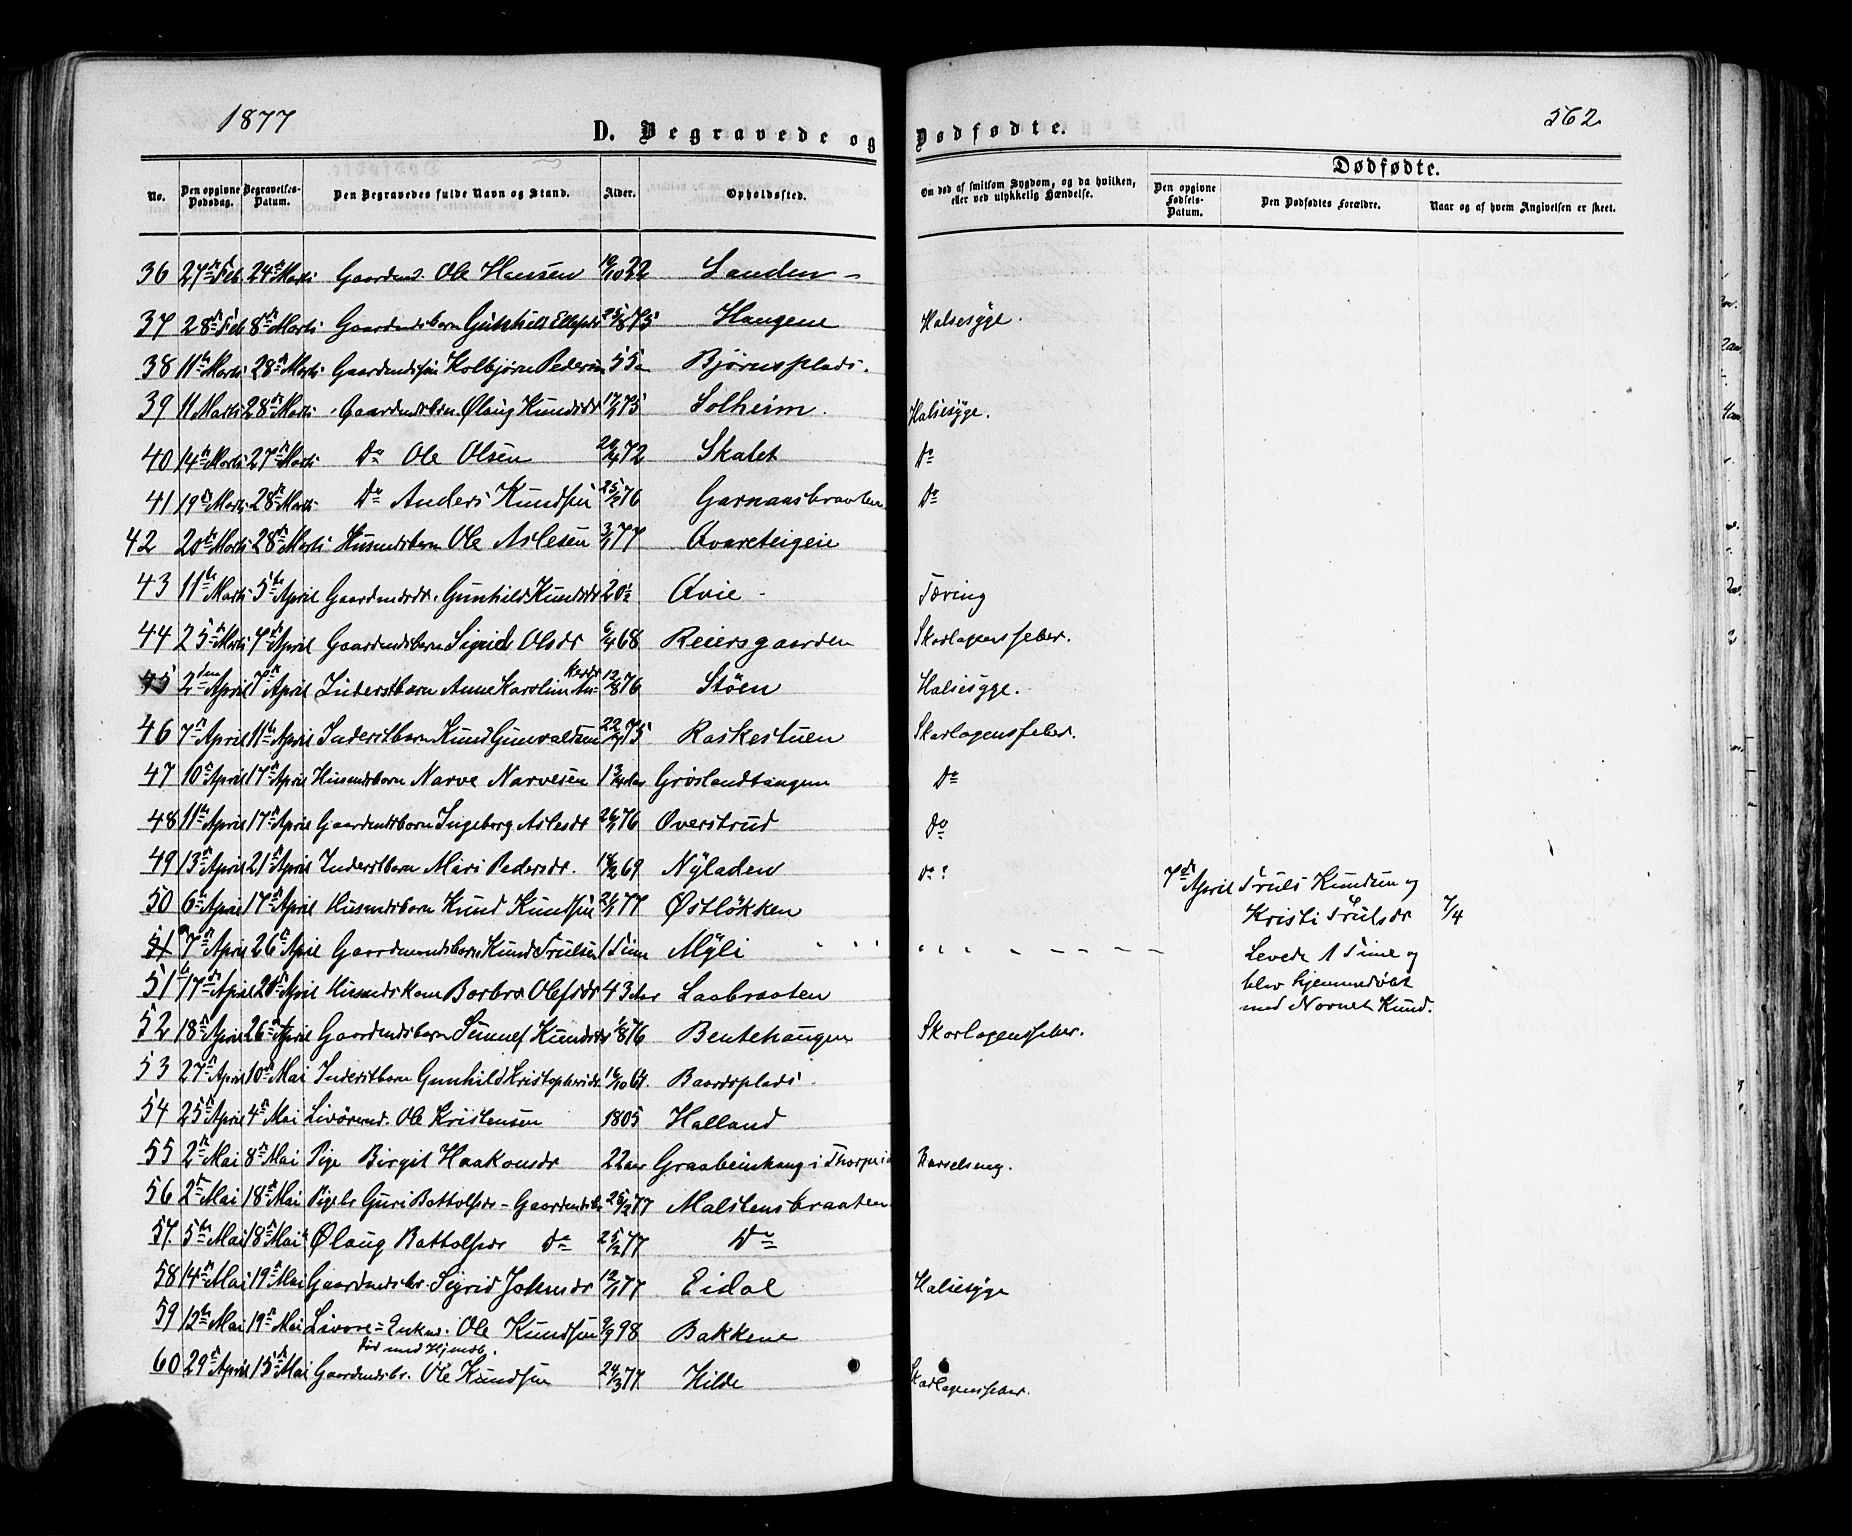 1877
562
D. Begravede og Dødfødte.
Dødfødte.
No.
Den opgivne Dødsdag.
Begravelses-Datum.
Den Begravedes fulde Navn og Stand.
Alder.
Opholdssted.
Om død af smitsom Sygdom, og da hvilken, eller ved ulykkelig Hændelse.
Den opgivne Fødsels-Datum.
Den Dødfødtes Forældre.
Naar og af hvem Angivelsen er skeet.
36 27de Feb. 24de Marts Gaardmd. Ole Hansen 22 Sanden
37 28de Feb 8de Marts Gaardmdsbarn Gunhild Ellefsdr 25/8 75 Haugene Halsesyge.
38 11te Marts 28de Marts Gaardmdssøn Kolbjørn Pedersen 55 Bjørnsplads.
39 11 Marts 28de Marts Gaardmdsbrn. Ølaug Knudsdr 75 Solheim. Halsesyge.
40 14de Marts 27de Marts Do Ole Olsen 72 Skalet Do
41 19de Marts 28de Marts Do Anders Knudsen 25/ 76 Garnaasbraaten Do
42 20de Marts 28de Marts Husmdsbarn Ole Aslesen 3/1 77 Kvareteigen
43 11te Marts 5te April Gaardmdsdr. Gunhild Knudsdr 20 Kvie Tæring
44 25de Marts 7de April Gaardmdsbarn Sigrid Olsdr 6/4 68 Reiersgaarden Skarlagensfeber.
45 2den April 7de April Inderstbarn Anne Karoline An=kersdr 12/8 76 Støen Halsesyge.
46 7de April 11te April Inderstbarn Knud Gunvaldsen 22/ 75 Raskestuen Skarlagensfeber.
47 10de April 17de April Husmdsbarn Narve Narvesen 1 3/4 Aar Grøslandtangen Do
48 11te April 17de April Gaardmdsbarn Ingeborg Aslesdr 26/ 76 Overstrud Do
49 13de April 21de April Inderstbarn Mari Pedersdr. 69 Nyladen Do ?
50 6te April 17de April Husmdsbarn Knud Knudsen 77 Østløkken
7de April Truls Knudsen og
Kristi Trulsdr 7/4
51 7de April 26de April Gaardmandsbarn Knud Trulsen 1 Time Myli
Levede 1 Time og
blev hjemmedøbt
med Navnet Knud.
51 17de April 28de April Husmdskone Barbro Olefsdr 43 Aar Laabraaten
52 18de April 26de April Gaardmdsbarn Sunnef Knudsdr 1/8 76 Bentehaugen Skarlagensfeber.
53 27de April 10de Mai Inderstbarn Gunhild Kristophersdr 16/10 64. Baardsplads.
54 25de April 4de Mai Livøremd. Ole Kristensen 1805 Halland
55 2de Mai 8de Mai Pige Birgit Haakonsdr 22 aar Graabeinhaug i Thorpe Barselseng.
56 2de Mai 18de Mai Pigebr Guri Battolfsdr - Gaardmdsbr 25/2 77 Malstensbraaten
57. 5te Mai 18de Mai Ølaug Battolfsdr do 25/2 77 Do
58 14de Mai 19de Mai Gaardmdsbr. Sigrid Johnsdr 12/1 77 Eidal Halsesyge
59 12te Mai 19de Mai Livøre= Enkmd. Ole Knudsen 9/9 98 Bakkene
død med Hjmdb.
60 29de April 15de Mai Gaardmdsbr. Ole Knudsen 24/3 77 Hilde Skarlagensfeber.